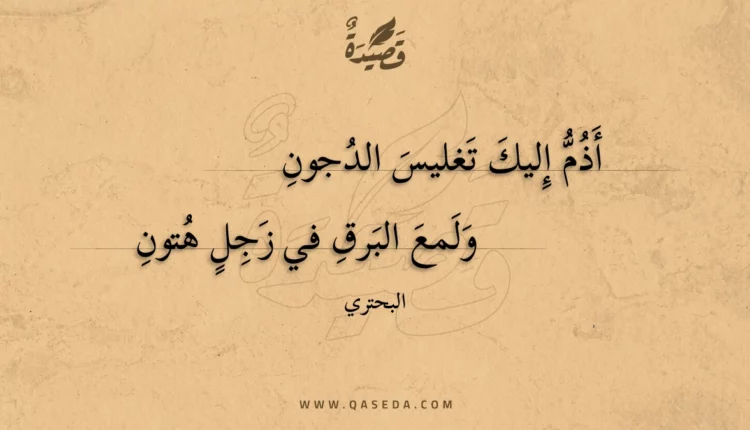 قَصِيْدَةٌ
أَذُمُّ إِليكَ تَغليسَ الدُجونِ
وَلَمعَ البَرقِ في زَجِلٍ هُتونِ
البحتري
WWW.QASEDA.COM